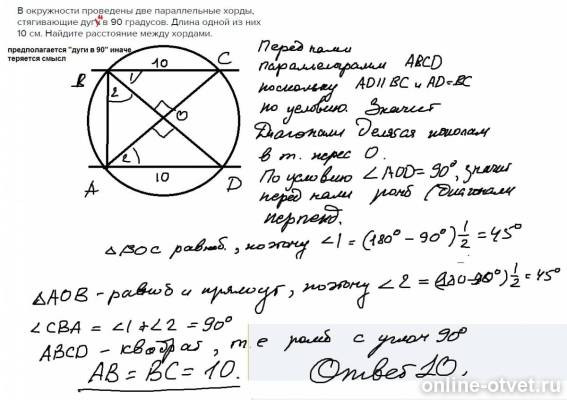 В окружности проведены две параллельные хорды,
стягивающие дугу и в 90 градусов. Длина одной из них
10 см. Найдите расстояние между хордами.
предполагается "дуги в 90" иначе
теряется смысл
B 10 C
1
2
O
2
A 10 D
Перед нами
параллеграмм ABCD
поскольку AD||BC и AD=BC
по условию. Значит
Диагонали делятся пополам
в т. перес O.
По условию ∠AOD=90°, значит
перед нами ромб (диагонали
перпенд.
△BOC равноб., поэтому ∠1=(180°-90°)1/2=45°
△AOB - равноб и прямоуг, поэтому ∠2=(180-90°)1/2=45°
∠CBA=∠1+∠2=90°
ABCD - квадрат, т е ромб с углом 90°
AB=BC=10.
Ответ 10.
online-otvet.ru